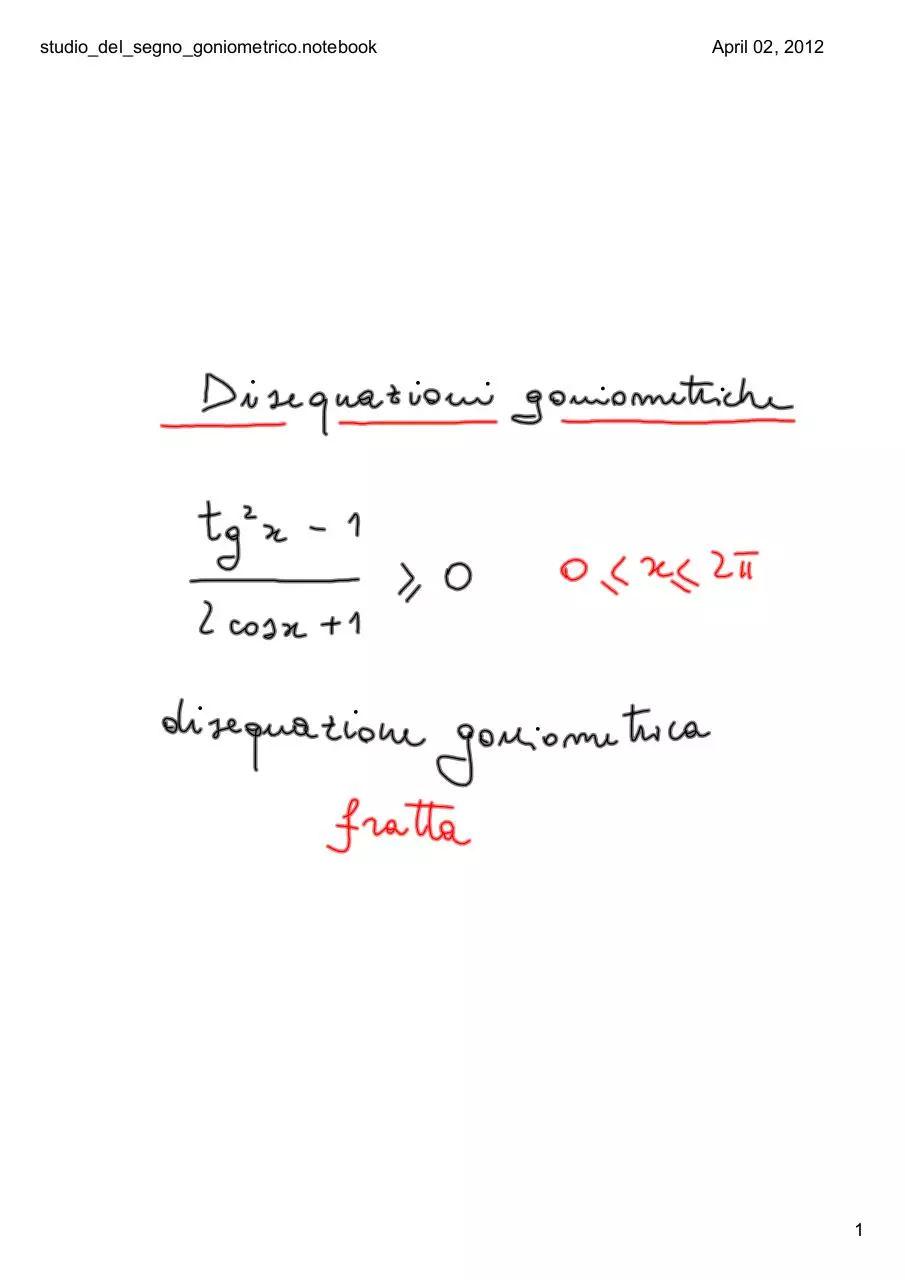 studio_del_segno_goniometrico.notebook April 02, 2012
Disequazioni goniometriche
tg²x - 1
⩾ 0 0 ⩽ x ⩽ 2π
2 cosx + 1
disequazione goniometrica
fratta
1